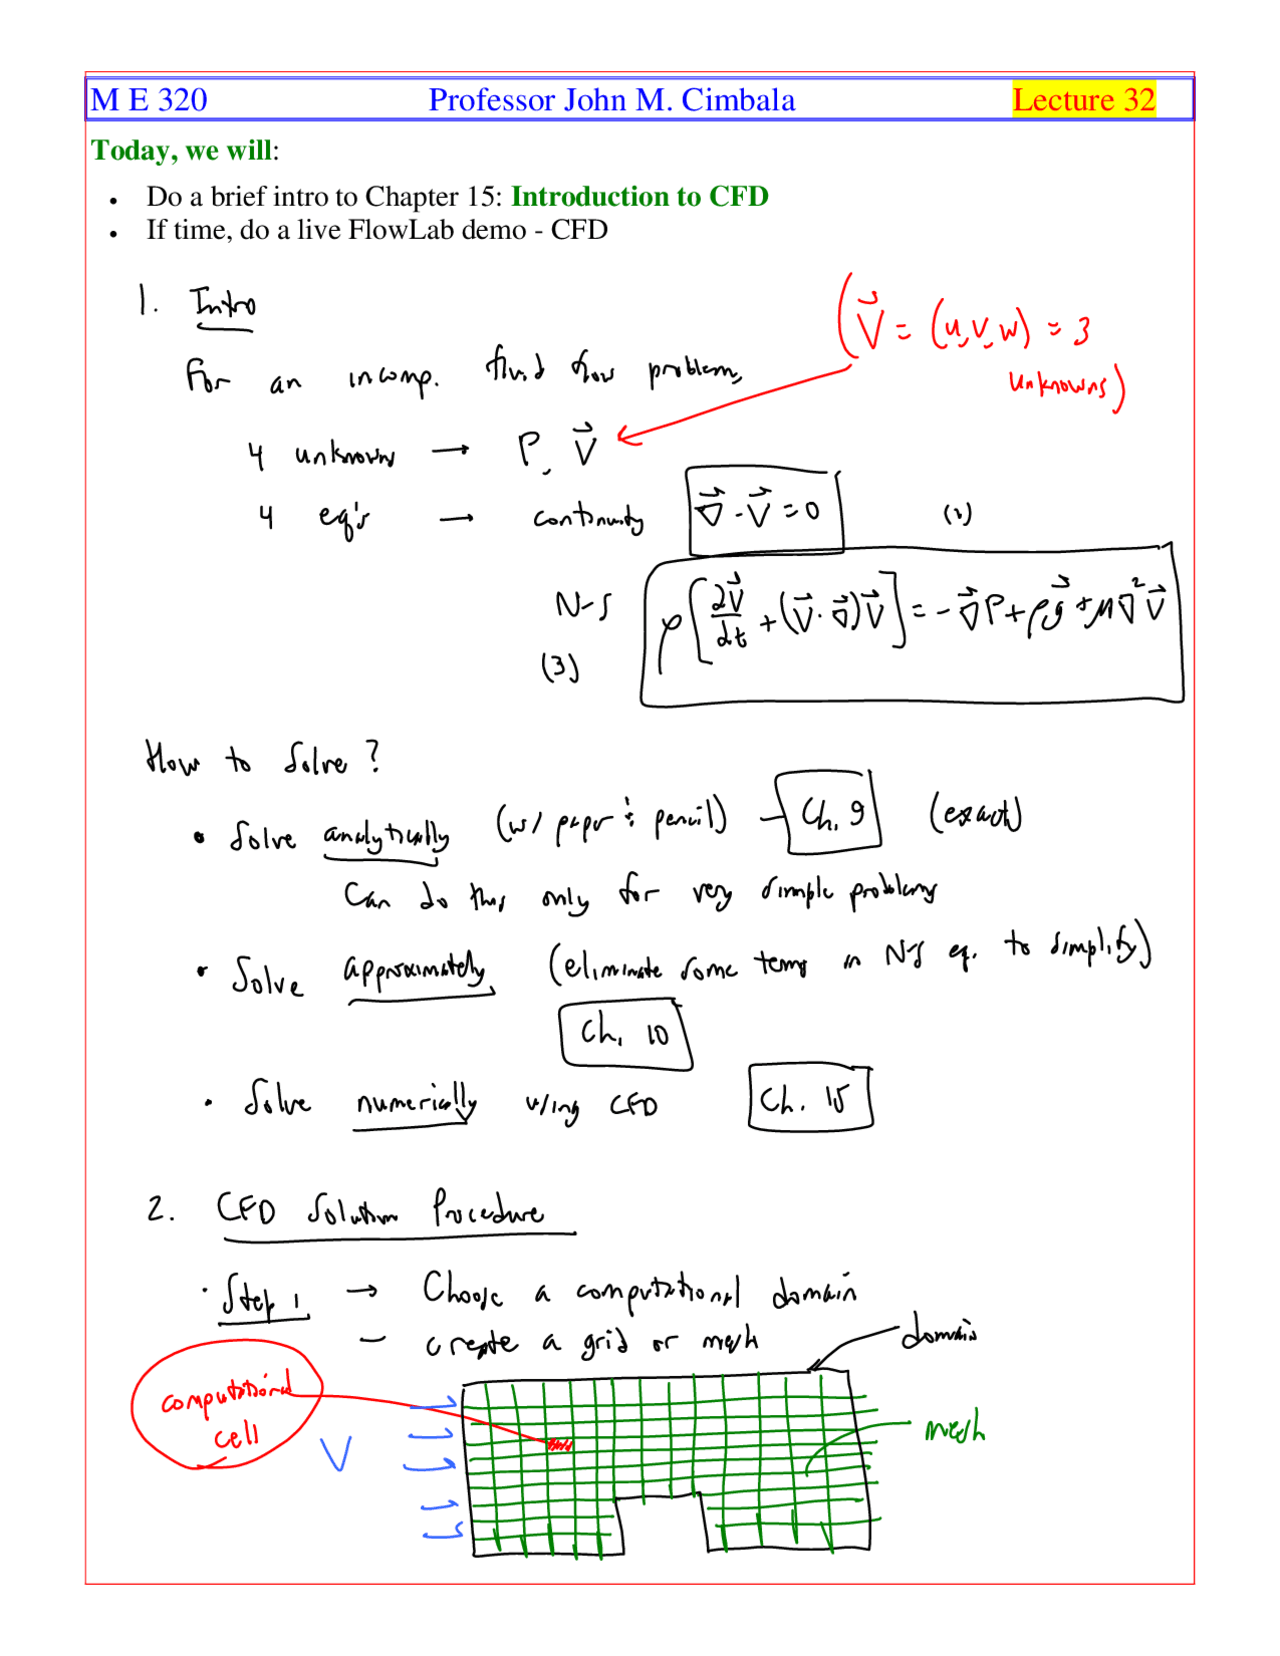 M E 320 Professor John M. Cimbala Lecture 32
Today, we will:
• Do a brief intro to Chapter 15: Introduction to CFD
• If time, do a live FlowLab demo - CFD
1. Intro
(V⃗ = (u,v,w) = 3 unknowns)
For an incomp. fluid flow problem,
4 unknowns → P, V⃗
4 eq's → continuity ∇⃗·V⃗ = 0 (1)
N-S ρ[∂V⃗/∂t + (V⃗·∇⃗)V⃗] = -∇⃗P + ρg⃗ + μ∇²V⃗
(3)
How to Solve?
• Solve analytically (w/ paper & pencil) – Ch. 9 (exact)
Can do this only for very simple problems
• Solve approximately (eliminate some terms in N-S eq. to simplify)
Ch. 10
• Solve numerically using CFD Ch. 15
2. CFD Solution Procedure
• Step 1 → Choose a computational domain
– create a grid or mesh
domain
computational
cell
mesh
V